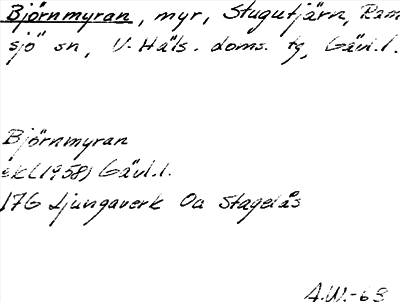 Björnmyran, myr, Stugutjärn, Ram
sjö sn, V. Häls. doms. tg, Gävl. l.
Björnmyran
ek (1958) Gävl. l.
17G Ljungaverk Oa Stagelås
A.W.-63